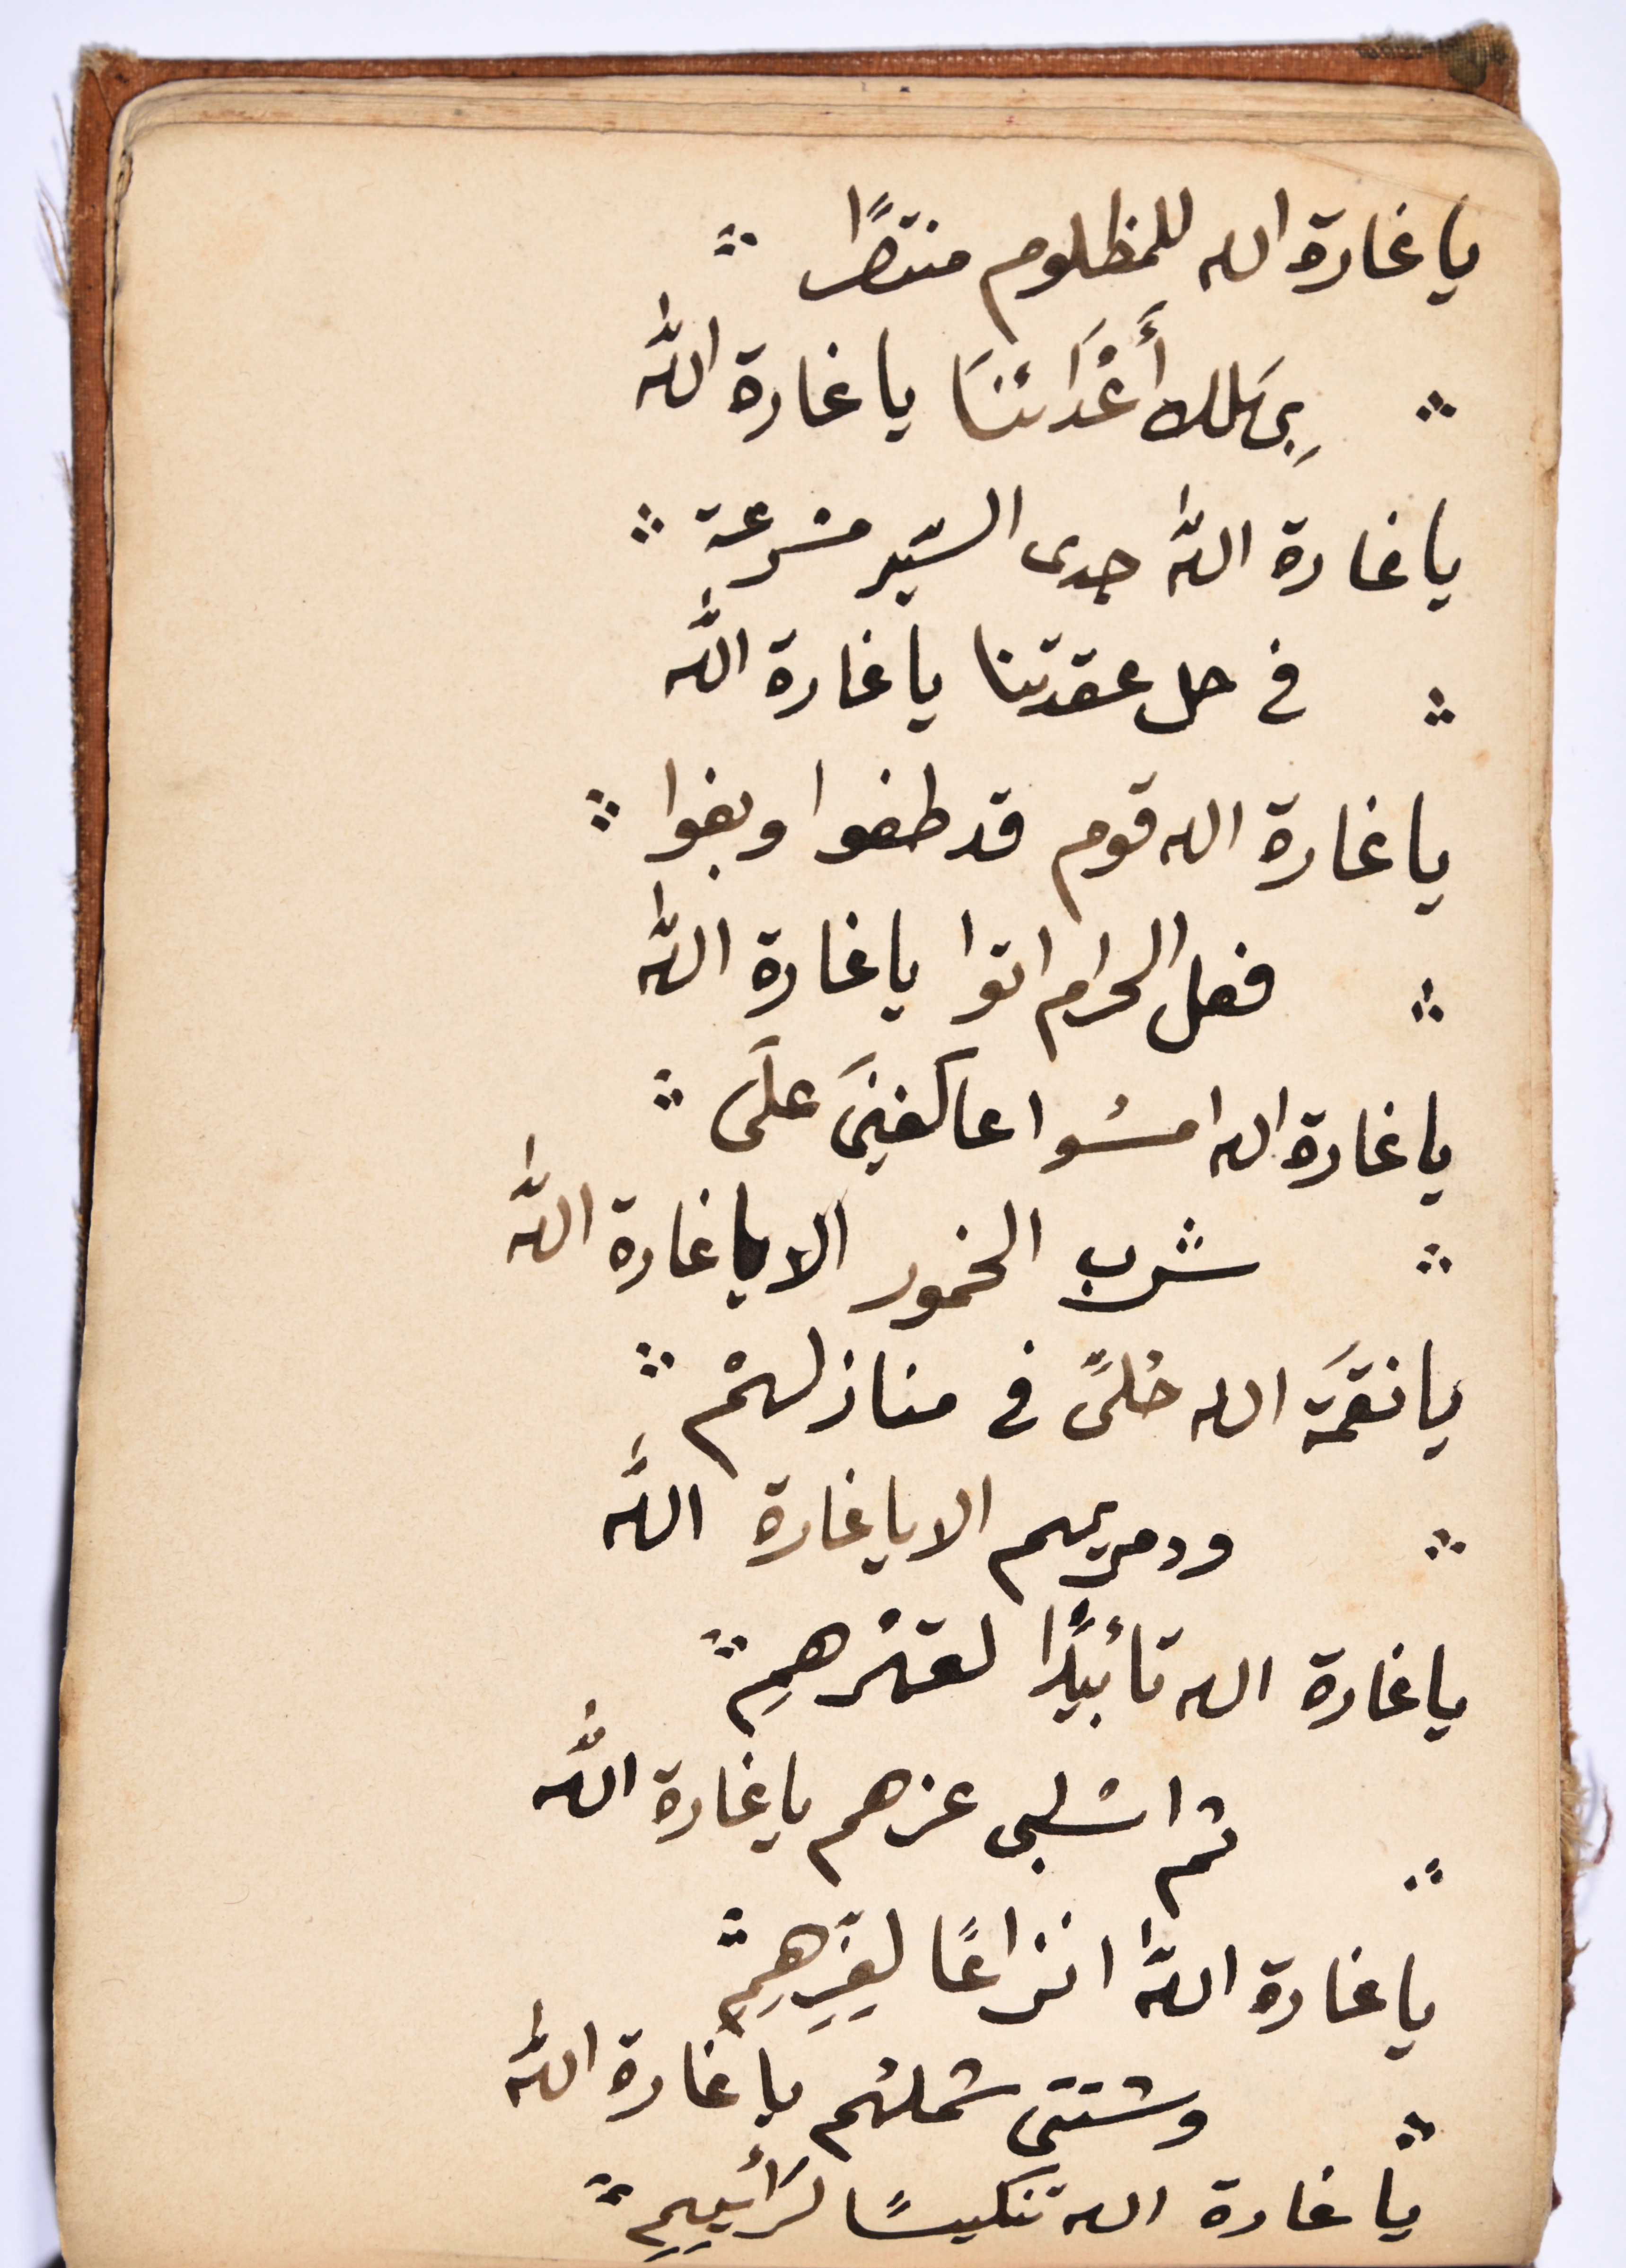 يا غارة الله للمظلوم منتصرًا
بِهَلاك أَعْدَائنَا يا غارة اللّٰه
يا غارة اللّٰه جدى السّير مسْرعة
فى حل عقدتنا يا غارة اللّٰه
يا غارة الله قوم قد طغوا وبغوا
فعل الحرام اتوا يا غارة اللّٰه
يا غارة الله امسُوا عاكفينَ علَى
شرب الخمور الا يا غارة اللّٰه
يا نقمَة الله حُلىّ فى منازلهمْ
ودمريهم الا يا غارة اللّٰه
يا غارة الله تائيدًا لقهْرهمِ
ثم اسْلبى عزهم يا غارة اللّٰه
يا غارة اللّٰه انزاعًا لعِزِّهِمِ
وشتتى شملهُم يا غارة اللّٰه
يا غارة الله تنكيسًا لرَائيهِمِ